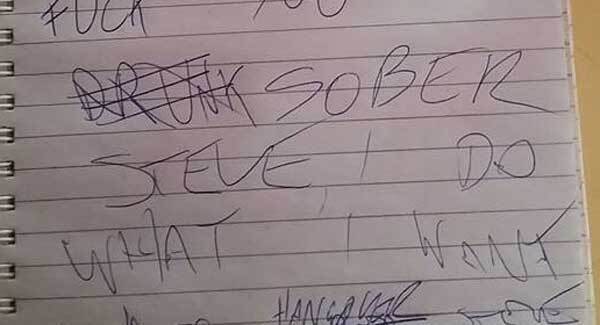 FUCK YOU
DRUNK SOBER
STEVE, I DO
WHAT I WANT
HANGOVER